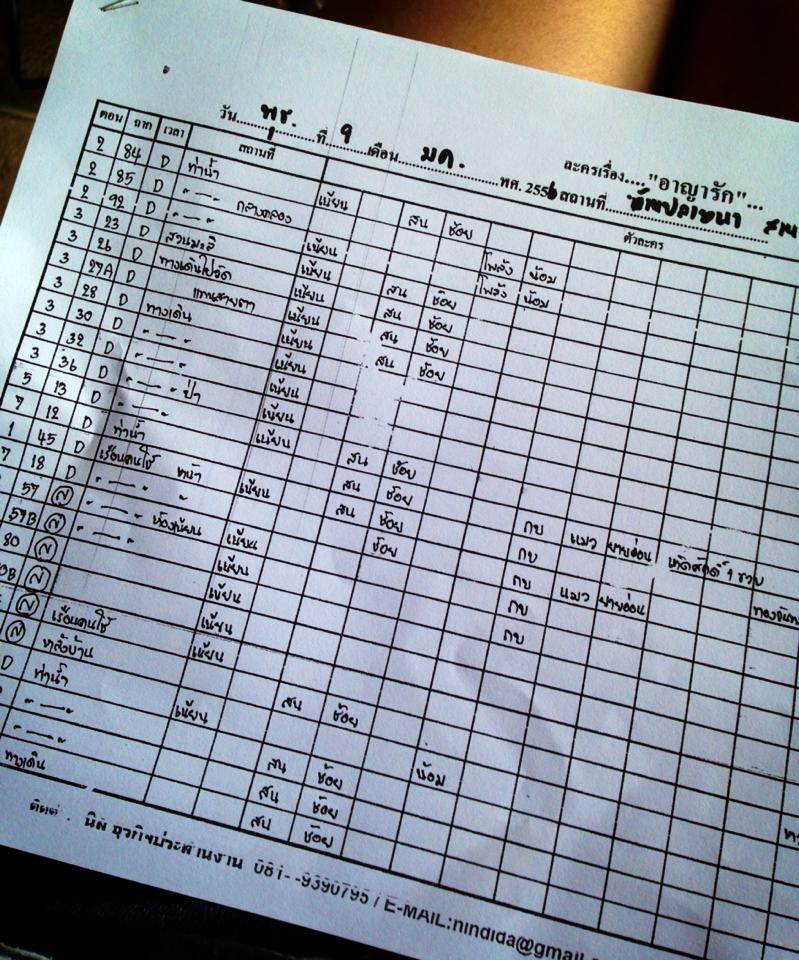 วัน...พุธ....ที่...9...เดือน...มค....พศ. 2556 สถานที่
ละครเรื่อง...."อาญารัก"...
ตอน ฉาก เวลา สถานที่ ตัวละคร
2 84 D ท่าน้ำ เนียน สน ช้อย
2 85 D -"- กลางคลอง โพล้ง น้อม
2 92 D -"- เนียน โพล้ง น้อม
3 23 D สวนมะลิ เนียน สน ช้อย
3 26 D ทางเดินไปวัด เนียน สน ช้อย
3 27A D เนียน สน ช้อย
3 28 D ทางเดิน เนียน
3 30 D -"- เนียน
3 32 D -"- เนียน
3 36 D -"- ป่า เนียน สน ช้อย
5 13 D -"- เนียน สน ช้อย
7 12 D ท่าน้ำ สน ช้อย
1 45 D เรือนคนใช้ หน้า เนียน ช้อย กบ แมว ยายอ่อน
7 18 D -"- " กบ
57 -"- ห้องเนียน เนียน กบ แมว ยายอ่อน
57B -"- เนียน กบ
80 เนียน กบ
เนียน
เรือนคนใช้ เนียน
หลังบ้าน สน ช้อย
D ท่าน้ำ เนียน น้อม
-"- สน ช้อย
-"- สน ช้อย
ทางเดิน สน ช้อย
ธุรกิจประสานงาน 081- -9390795 / E-MAIL:nindida@gmail